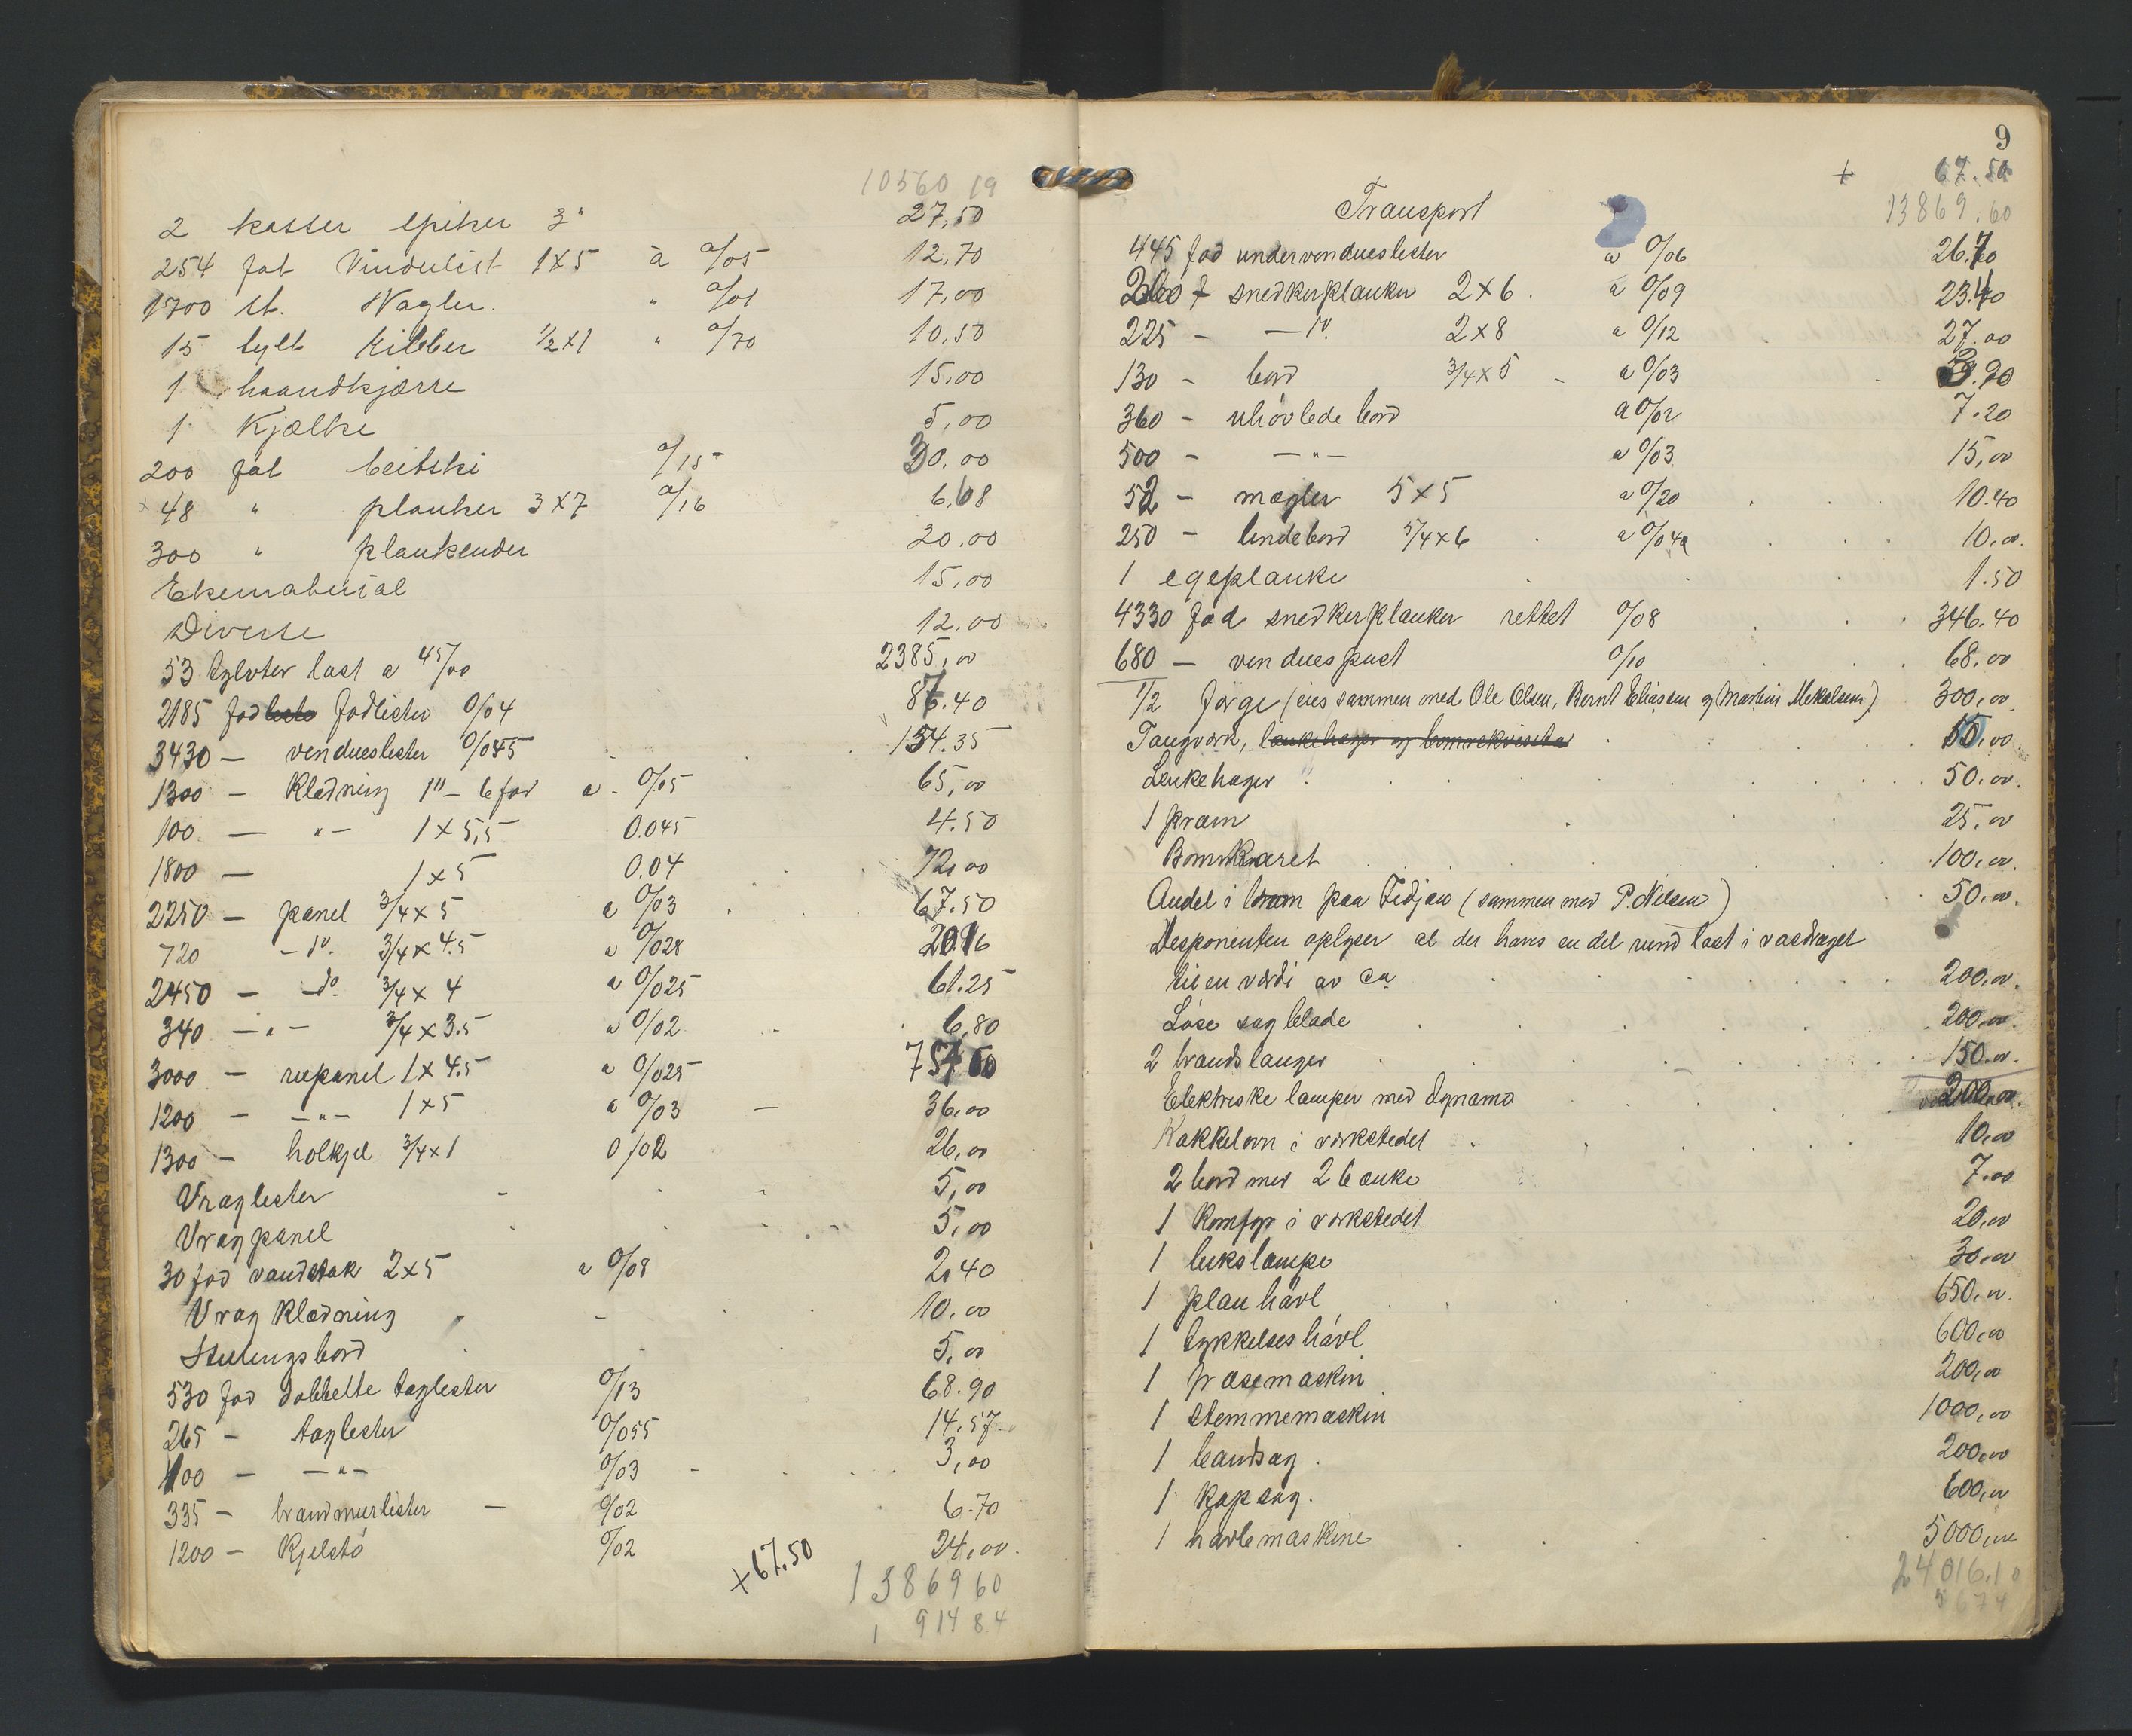 10560 19
2 kasser spiker 3" 27,50
254 fot Vinduslist 1x5 à 0/05 12,70
1700 st. Nagler. " 0/01 17,00
15 tylt Ribber 1/2x1 " 0/70 10,50
1 haandkjærre 15,00
1 Kjælke 5,00
200 fot beitski 0/15 30.00
48 " planker 3x7 0/16 6,68
300 " plankender 20.00
Ekematerial 15,00
Diverse 12.00
53 tylvter last a 45/00 2385,00
2185 fod fodlister 0/04 87.40
3430 — vendueslister 0/045 154.35
1300 — Klædning 1" - 6 fod a - 0/05 65,00
100 — " — 1 x 5,5 0.045 4.50
1800 — 1 x 5 0.04 72,00
2250 — panel 3/4 x 5 a 0/03 67.50
720 - do. 3/4 x 4.5 a 0/028 20.16
2450 — do 3/4 x 4 a 0/025 61.25
340 — " — 3/4 x 3.5 a 0/02 6,80
3000 — rupanel 1 x 4.5 a 0/025
1200 - — " — 1 x 5 a 0/03 — 36,00
1300 — holkjel 3/4 x 1 0/02 26,00
Vraglister 5,00
Vragpanel 5,00
30 fod vandstok 2x5 a 0/08 2,40
Vrag Klædning 10,00
Stullingsbord 5,00
530 fod dobbelte taglister 0/13 68.90
265 — taglister 0/055 14.57
100 — — " — 0/03 3,00
335 — brandmurlister — 0/02 6.70
1200 — Kjelstó 0/02 24,00.
+67.50
13869 60
1 914 84
9
+ 67.50
Transport 13869.60
445 fod undervendueslister a 0/06 26.70
260 f snedkerplanker 2x6. a 0/09 23.40
225 - — do. 2x8 a 0/12 27.00
130 - bord 3/4x5 - a 0/03 3.90
360 - uhövlede bord a 0/02 7.20
500 - — " — a 0/03 15,00
52 - mægler 5x5 a 0/20 10.40
250 - lindebord 5/4x6 a 0/04 10,00.
1 egeplanke 1.50
4330 fod snedkerplanker rettet 0/08 346.40
680 — venduespust 0/10 68,00
1/2 Jörge (eies sammen med Ole Olsen, Bernt Eliassen og Martin Mekalsen) 300,00.
Taugverk, lænkehager og bomrekvisita 15,00
Lenkehager 50.00.
1 pram 25,00
Bomkaret 100,00.
Andel i bom paa Fidjeu (sammen med P. Nilsen) 50.00.
Desponenten oplyser at der haves en del rund last i vasdraget
til en værdi av ca 200,00.
Löse sagblade 200,00.
2 brandslanger 150.00.
Elektriske lamper med dynamo 200,00.
Kakkelovn i verkstedet 10,00
2 bord med 2 bænke 7.00
1 Komfyr i verkstedet 20,00
1 lukslampe 30,00
1 plan hövl 650,00.
1 tykkelseshövl 600,00
1 fræsemaskin 200,00
1 stemmemaskin 1000,00
1 bandsag. 200,00
1 kapsag. 600,00
1 hövlemaskine 5000,00
24016.10